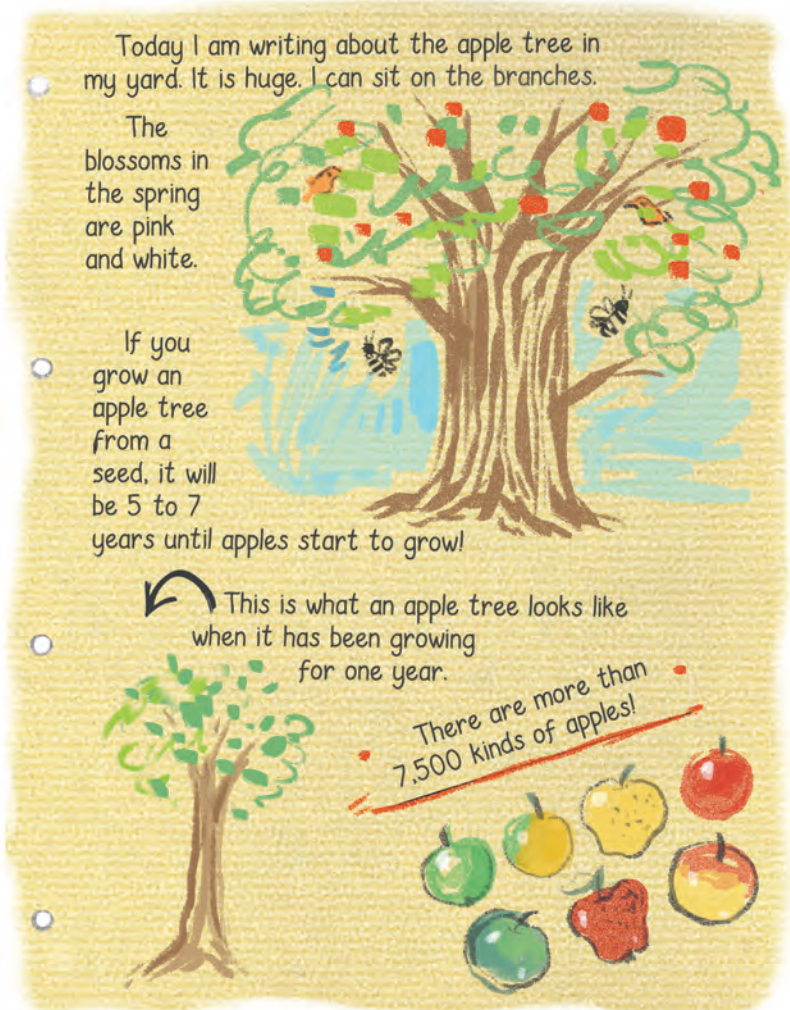 Today I am writing about the apple tree in
my yard. It is huge. I can sit on the branches.
The
blossoms in
the spring
are pink
and white.
If you
grow an
apple tree
from a
seed, it will
be 5 to 7
years until apples start to grow!
This is what an apple tree looks like
when it has been growing
for one year.
There are more than
7,500 kinds of apples!